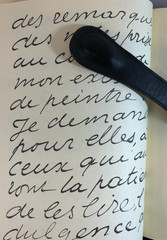 des remarqu
des notes pris
au co
mon ex
de peintre
Je deman
pour elles, a
ceux qui au
ront la patie
de les lire, l
dulgence